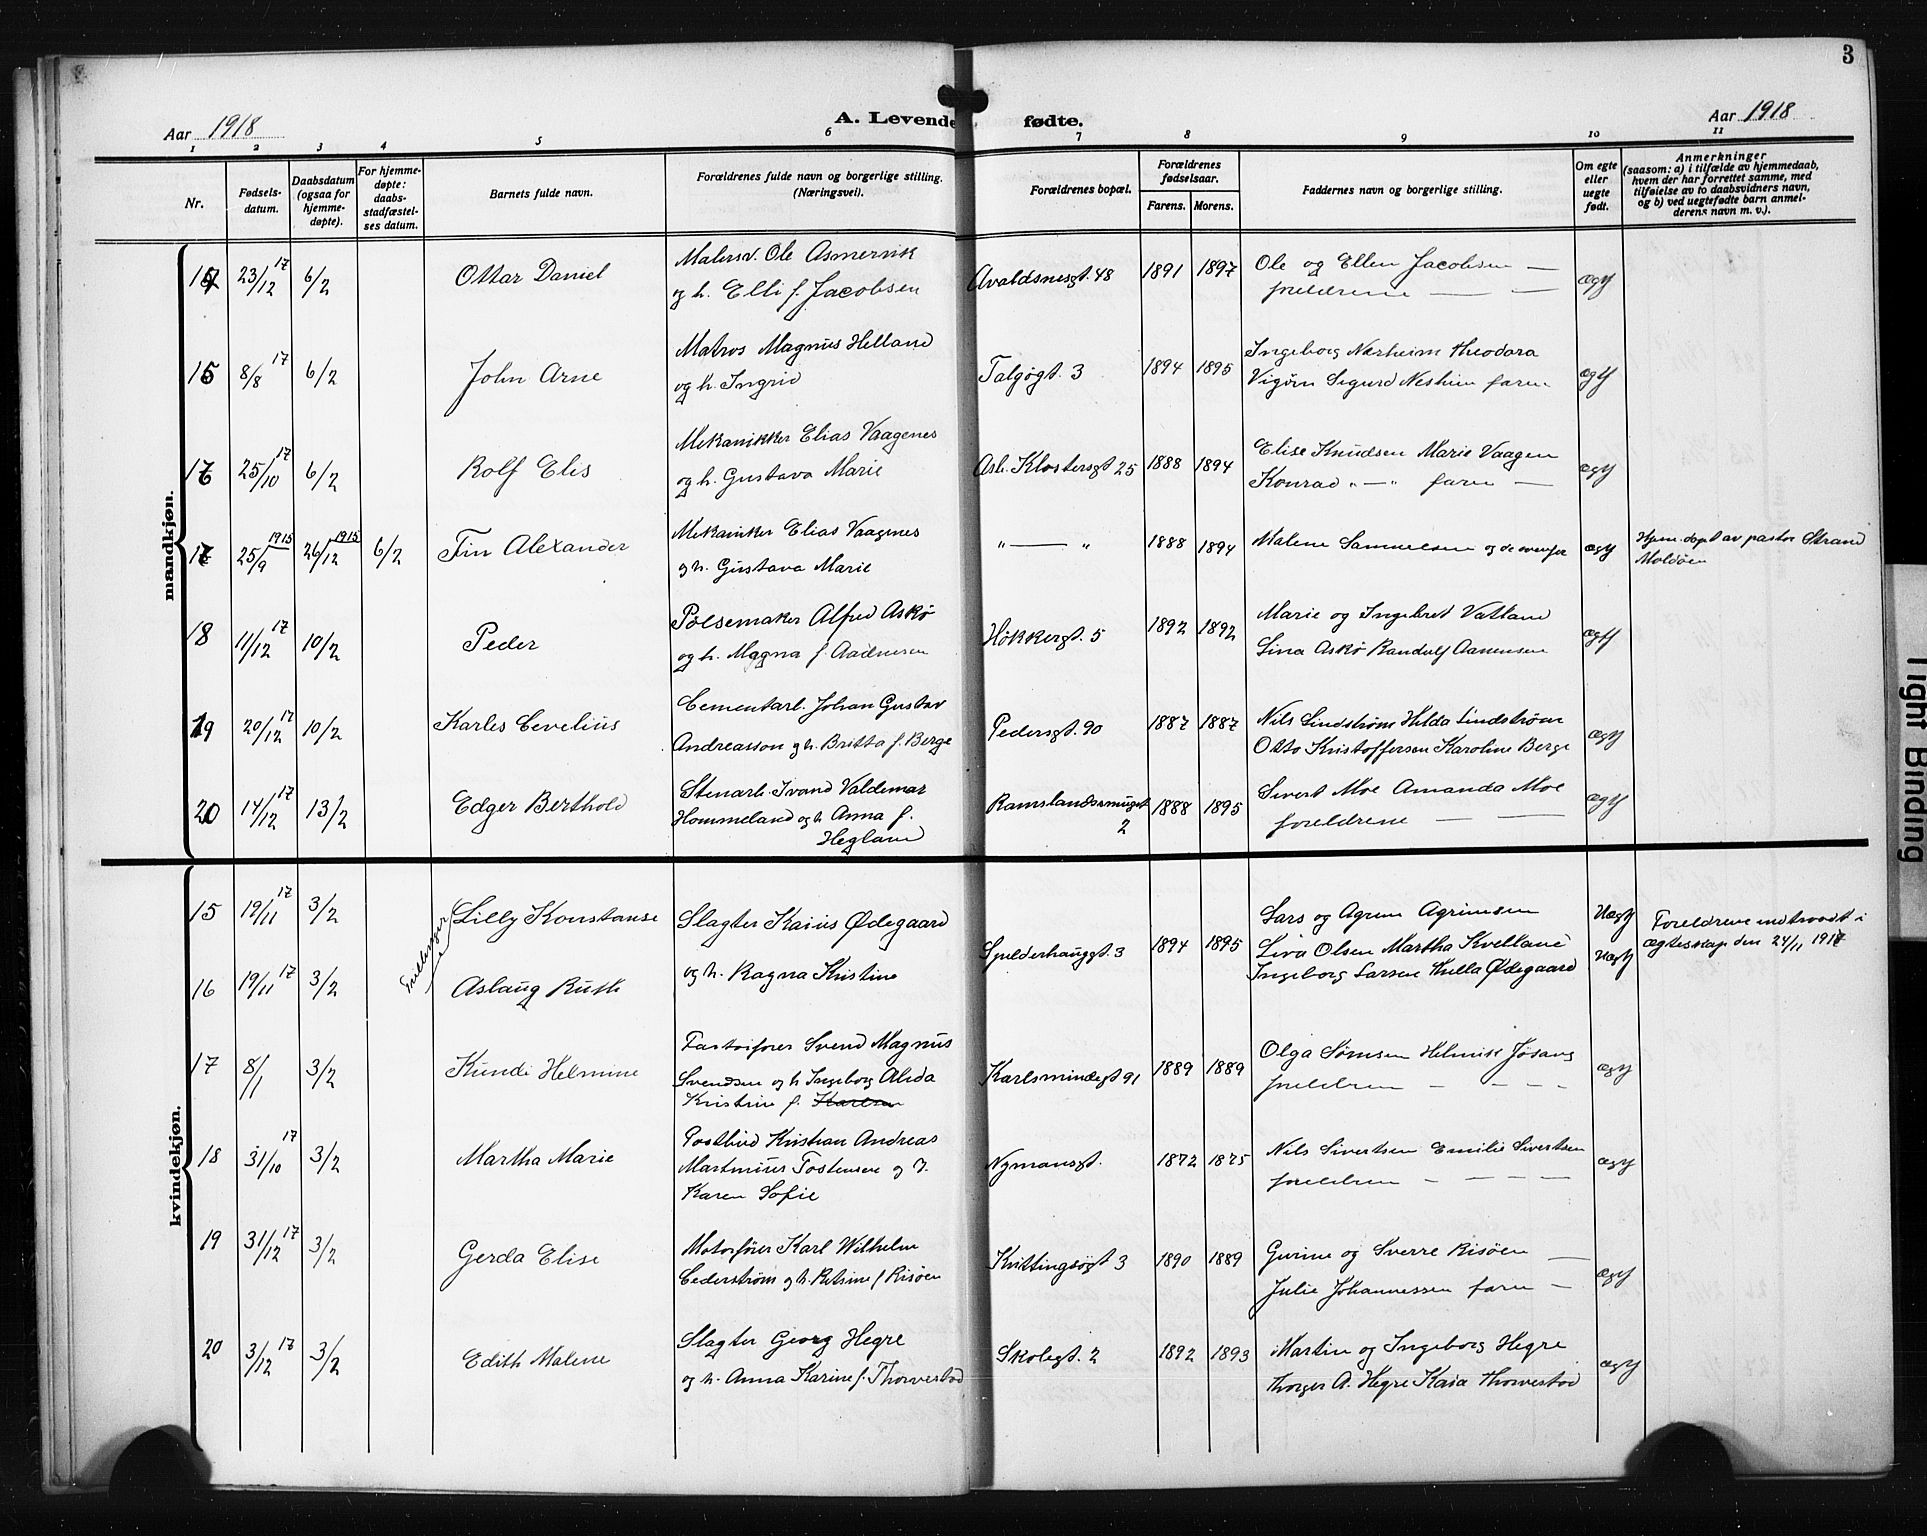 3
Aar 1918
A. Levende fødte.
Aar 1918
1 2 3 4 5 6 7 8 9 10 11
Nr.
Fødsels-
datum.
Daabsdatum
(ogsaa for
hjemme-
døpte).
For hjemme-
døpte:
daabs-
stadfæstel-
ses datum.
Barnets fulde navn.
Forældrenes fulde navn og borgerlige stilling.
(Næringsvei).
Forældrenes bopæl.
Forældrenes
fødselsaar.
Farens. Morens.
Faddernes navn og borgerlige stilling.
Om egte
eller
uegte
født.
Anmerkninger
(saasom: a) i tilfælde av hjemmedaab,
hvem der har forrettet samme, med
tilføielse av to daabsvidners navn,
og b) ved uegtefødte barn anmel-
derens navn m. v.).
mandkjøn.
23/12 17 6/2 Ottar Daniel
Malersv. Ole Asmervik
og h. Elli f. Jacobsen
Avaldsnesgt. 48 1891 1897
Ole og Ellen Jacobsen —
foreldrene — —
ægt
15 8/8 17 6/2 John Arne
Matros Magnus Helland
og h. Ingrid
Talgøgt. 3 1894 1895
Ingeborg Nærheim Theodora
Sigurd farm
ægt
16 25/10 17 6/2 Rolf Elis
Mekanikker Elias Vaagenes
og h. Gustava Marie
Asb. Klostersgt 25 1888 1894
Elise Knudsen Marie Vaagen
Konrad „ — „ farm —
ægt
17 25/9 1915 26/12 1915 6/2 Fin Alexander
Mekaniker Elias Vaagenes
og h. Gustava Marie
„ — „ 1888 1894
Malene Samuelsen og de ovenfor
ægt
Hjem. døpt av pastor Strand
Moldøen
18 11/12 17 10/2 Peder
Pølsemaker Alfred Askø
og h. Magna f. Aadnesen
Høkkergt. 5 1892 1892
Marie og Ingebret Vatland
Lina Askø Randulf Aanensen
ægt
19 20/12 17 10/2 Karles Cevelius
Cementarb. Johan Gustav
Andreasson og h. Britta f. Berge
Pedersgt. 90 1887 1887
Nils Lindstrøm Hilda Lindstrøm
Otto Kristoffersen Karoline Berge
ægt
20 14/12 17 13/2 Edger Berthold
Stenarb. Ivand Valdemar
Hommeland og h Anna f.
Hegland
Ramslandssmuget
2
1888 1895
Sivert Moe Amanda Moe
foreldrene — —
ægt
kvindekjøn.
15 19/11 17 3/2 Lilly Konstanse
Slagter Kaius Ødegaard
og h. Ragna Kristine
Spilderhauggt. 3 1894 1895
Lars og Agrimsen
Liva Olsen Martha Kvelland
Ingeborg Larsen Hulla Ødegaard
Uægt
Uægt
Foreldrene indtraadt i
ægteskap den 24/11 1917
Tvillinger
16 19/11 17 3/2 Aslaug Ruth
17 8/1 3/2 Kundi Helmine
Svend Magnus
Svendsen og h Ingeborg Alida
Kristine f. Karlsen
Karlsmindegt 91 1889 1889
Olga Sømsen Helmik Jøsang
foreldren - - - -
ægt
18 31/10 17 3/2 Martha Marie
Postbud Kristian Andreas
Martinius Tostensen og h.
Karen Sofie
Nymansgt. 1872 1875
Nils Sivertsen Emilie Sivertsen
foreldren - - - -
ægt
19 31/12 17 3/2 Gerda Elise
Motorfører Karl Wilhelm
Cederstrøm og h. Petrine f Risøen
Kvittingsøgt 3 1890 1889
Gurine og Sverre Risøen —
Julie Johannessen farm —
ægt
20 3/12 17 3/2 Edith Malene
Slagter Georg Hegre
og h. Anna Karine f. Thorvestad
Skolegt. 2 1892 1893
Martin og Ingeborg Hegre
Thorger A. Hegre Kaia Thorvestad
ægt
Tight Binding